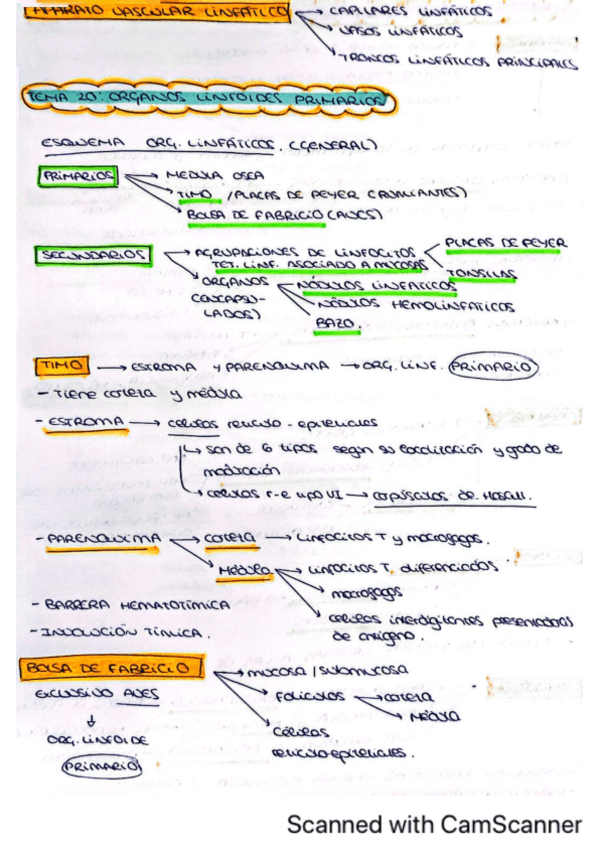 APARATO VASCULAR LINFÁTICO → CAPILARES LINFÁTICOS
→ VASOS LINFÁTICOS
→ TRONCOS LINFÁTICOS PRINCIPALES
TEMA 20: ORGANOS LINFOIDES PRIMARIOS
ESQUEMA ORG. LINFÁTICOS. (GENERAL)
PRIMARIOS → MEDULA OSEA
→ TIMO /(PLACAS DE PEYER (RUMIANTES)
→ BOLSA DE FABRICIO (AVES)
SECUNDARIOS → AGRUPACIONES DE LINFOCITOS
TEJ. LINF. ASOCIADO A MUCOSAS
PLACAS DE PEYER
TONSILAS
→ ORGANOS (ENCAPSU-LADOS)
NÓDULOS LINFATICOS
NÓDULOS HEMOLINFATICOS
BAZO.
TIMO → ESTROMA Y PARENQUIMA → ORG. LINF. PRIMARIO
- Tiene corteza y médula
- ESTROMA → celulas reticulo-epiteliales
↳ son de 6 tipos según su localización y grado de
maduración
↳ celulas r-e tipo VI → corpúsculos de Hassall.
- PARENQUIMA → corteza → Linfocitos T y macrofagos.
→ Médula → Linfocitos T diferenciados
→ macrofagos
→ celulas interdigitantes presentadoras
de antígeno.
- BARRERA HEMATOTÍMICA
- INVOLUCIÓN TÍMICA.
BOLSA DE FABRICIO → mucosa / submucosa
EXCLUSIVO AVES
→ Folículos → corteza
→ Médula
↓
ORG. LINFOIDE
PRIMARIO
→ Células
reticulo-epiteliales.
Scanned with CamScanner